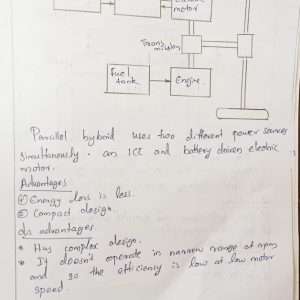 motor
Trans
mission
Fuel
tank
Engine.
Parallel hybrid uses two different power sources
simultaneously. an ICE and battery driven electric
motor.
Advantages
① Energy loss is less.
② Compact design.
dis advantages
* Has complex design.
* It doesn't operate in narrow range of rpm
and so the efficiency is low at low motor
speed